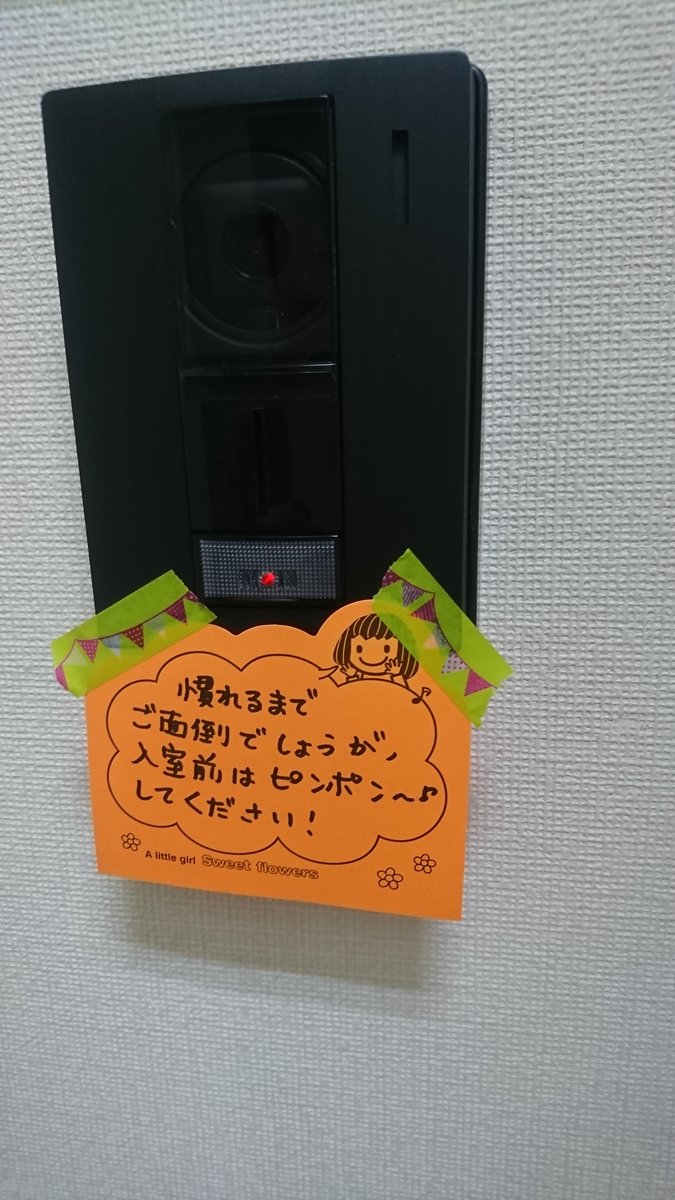 慣れるまで
ご面倒でしょうが、
入室前はピンポン〜♪
してください!
A little girl Sweet flowers